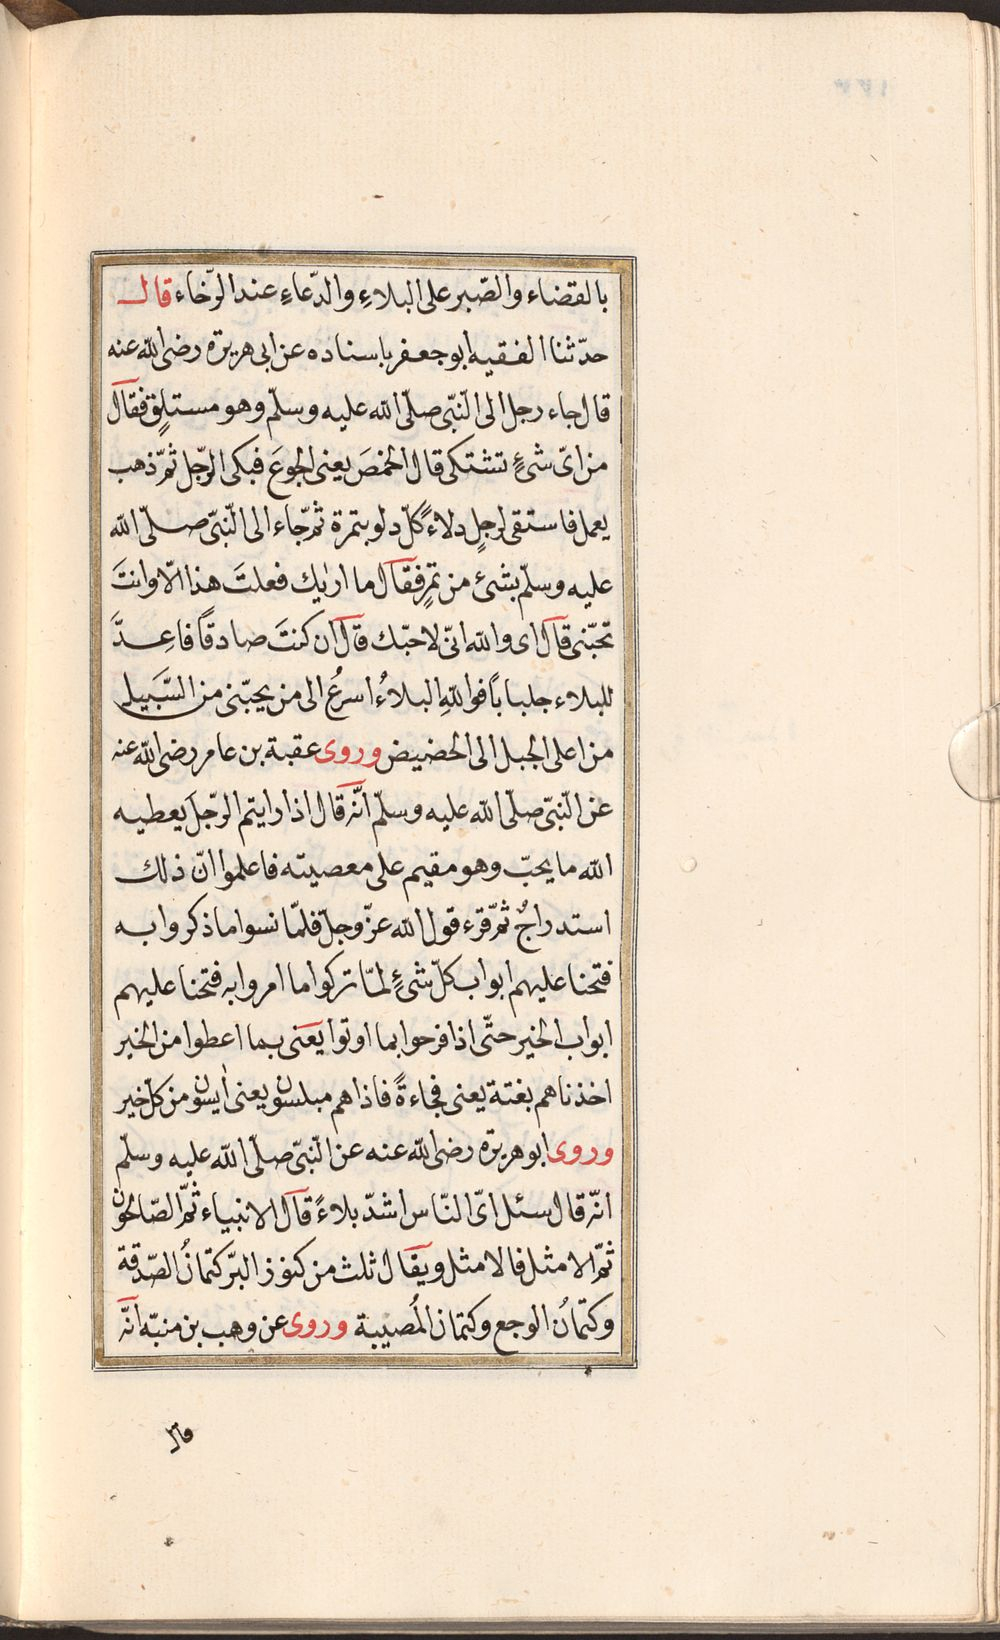 بالقضاء والصّبر على البلاءِ والدّعاءِ عند الرّخاء قال
حدّثنا الفقيه ابو جعفر باسناده عن ابى هريرة رضى الله عنه
قال جاء رجل الى النّبىّ صلّى الله عليه وسلّم وهو مستلقٍ فقال
من اىّ شئٍ تشتكى قال الخمصَ يعنى الجوعَ فبكى الرّجل ثمّ ذهب
يعمل فاستقى لرجلٍ دلاءً كلّ دلو بتمرة ثمّ جاء الى النّبىّ صلّى الله
عليه وسلّم بشئ من تمرٍ فقال ما اريك فعلتَ هذا الّا وانتَ
تحبّنى قال اى والله انّى لاحبّك قال ان كنتَ صادقًا فاعِدَّ
للبلاء جلبابًا فواللهِ البلاءُ اسرعُ الى من يحبّنى من السَّيل
من اعلى الجبل الى الحضيض وروى عقبة بن عامر رضى الله عنه
عن النّبىّ صلّى الله عليه وسلّم انّه قال اذا رايتم الرّجلَ يعطيه
الله ما يحبّ وهو مقيم على معصيته فاعلموا انّ ذلك
استدراجٌ ثمّ قرء قول الله عزّ وجلّ فلمّا نسوا ما ذكروا به
فتحنا عليهم ابواب كلّ شئٍ لمّا تركوا ما امروا به فتحنا عليهم
ابواب الخير حتّى اذا فرحوا بما اوتوا يعنى بما اعطوا من الخير
اخذناهم بغتة يعنى فجاءةً فاذا هم مبلسون يعنى آيسون من كلّ خير
وروى ابو هريرة رضى الله عنه عن النّبىّ صلّى الله عليه وسلّم
انّه قال سئل اىّ النّاس اشدّ بلاءً قال الانبياء ثمّ الصّالحون
ثمّ الامثل فالامثل ويقال ثلث من كنوز البرّ كتمانُ الصّدقة
وكتمانُ الوجع وكتمان المُصيبة وروى عن وهب بن منبّه انّه
قال